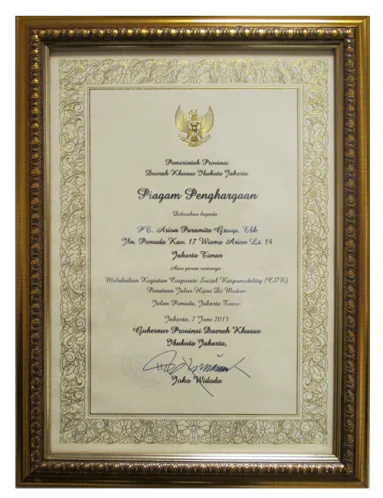 Pemerintah Provinsi
Daerah Khusus Ibukota Jakarta
Piagam Penghargaan
Diberikan kepada :
PT. Arion Paramita Group, Tbk
Jln. Pemuda Kav. 17 Wisma Arion Lt. 14
Jakarta Timur
Atas peran sertanya
Melakukan Kegiatan Corporate Social Responsibility (CSR)
Penataan Jalur Hijau Di Median
Jalan Pemuda, Jakarta Timur
Jakarta, 7 Juni 2013
Gubernur Provinsi Daerah Khusus
Ibukota Jakarta,
Joko Widodo